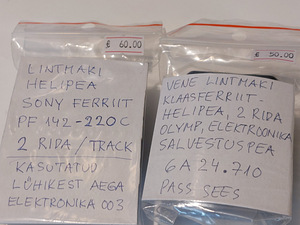 £ 60.00
LINTMAKI
HELIPEA
SONY FERRIIT
PF 142-220C
2 RIDA / TRACK
KASUTATUD
LÜHIKEST AEGA
ELEKTRONIKA 003
£ 50.00
VENE LINTMAKI
KLAASFERRIIT-
HELIPEA, 2 RIDA
OLYMP, ELEKTROONIKA
SALVESTUSPEA
6A24.710
PASS SEES